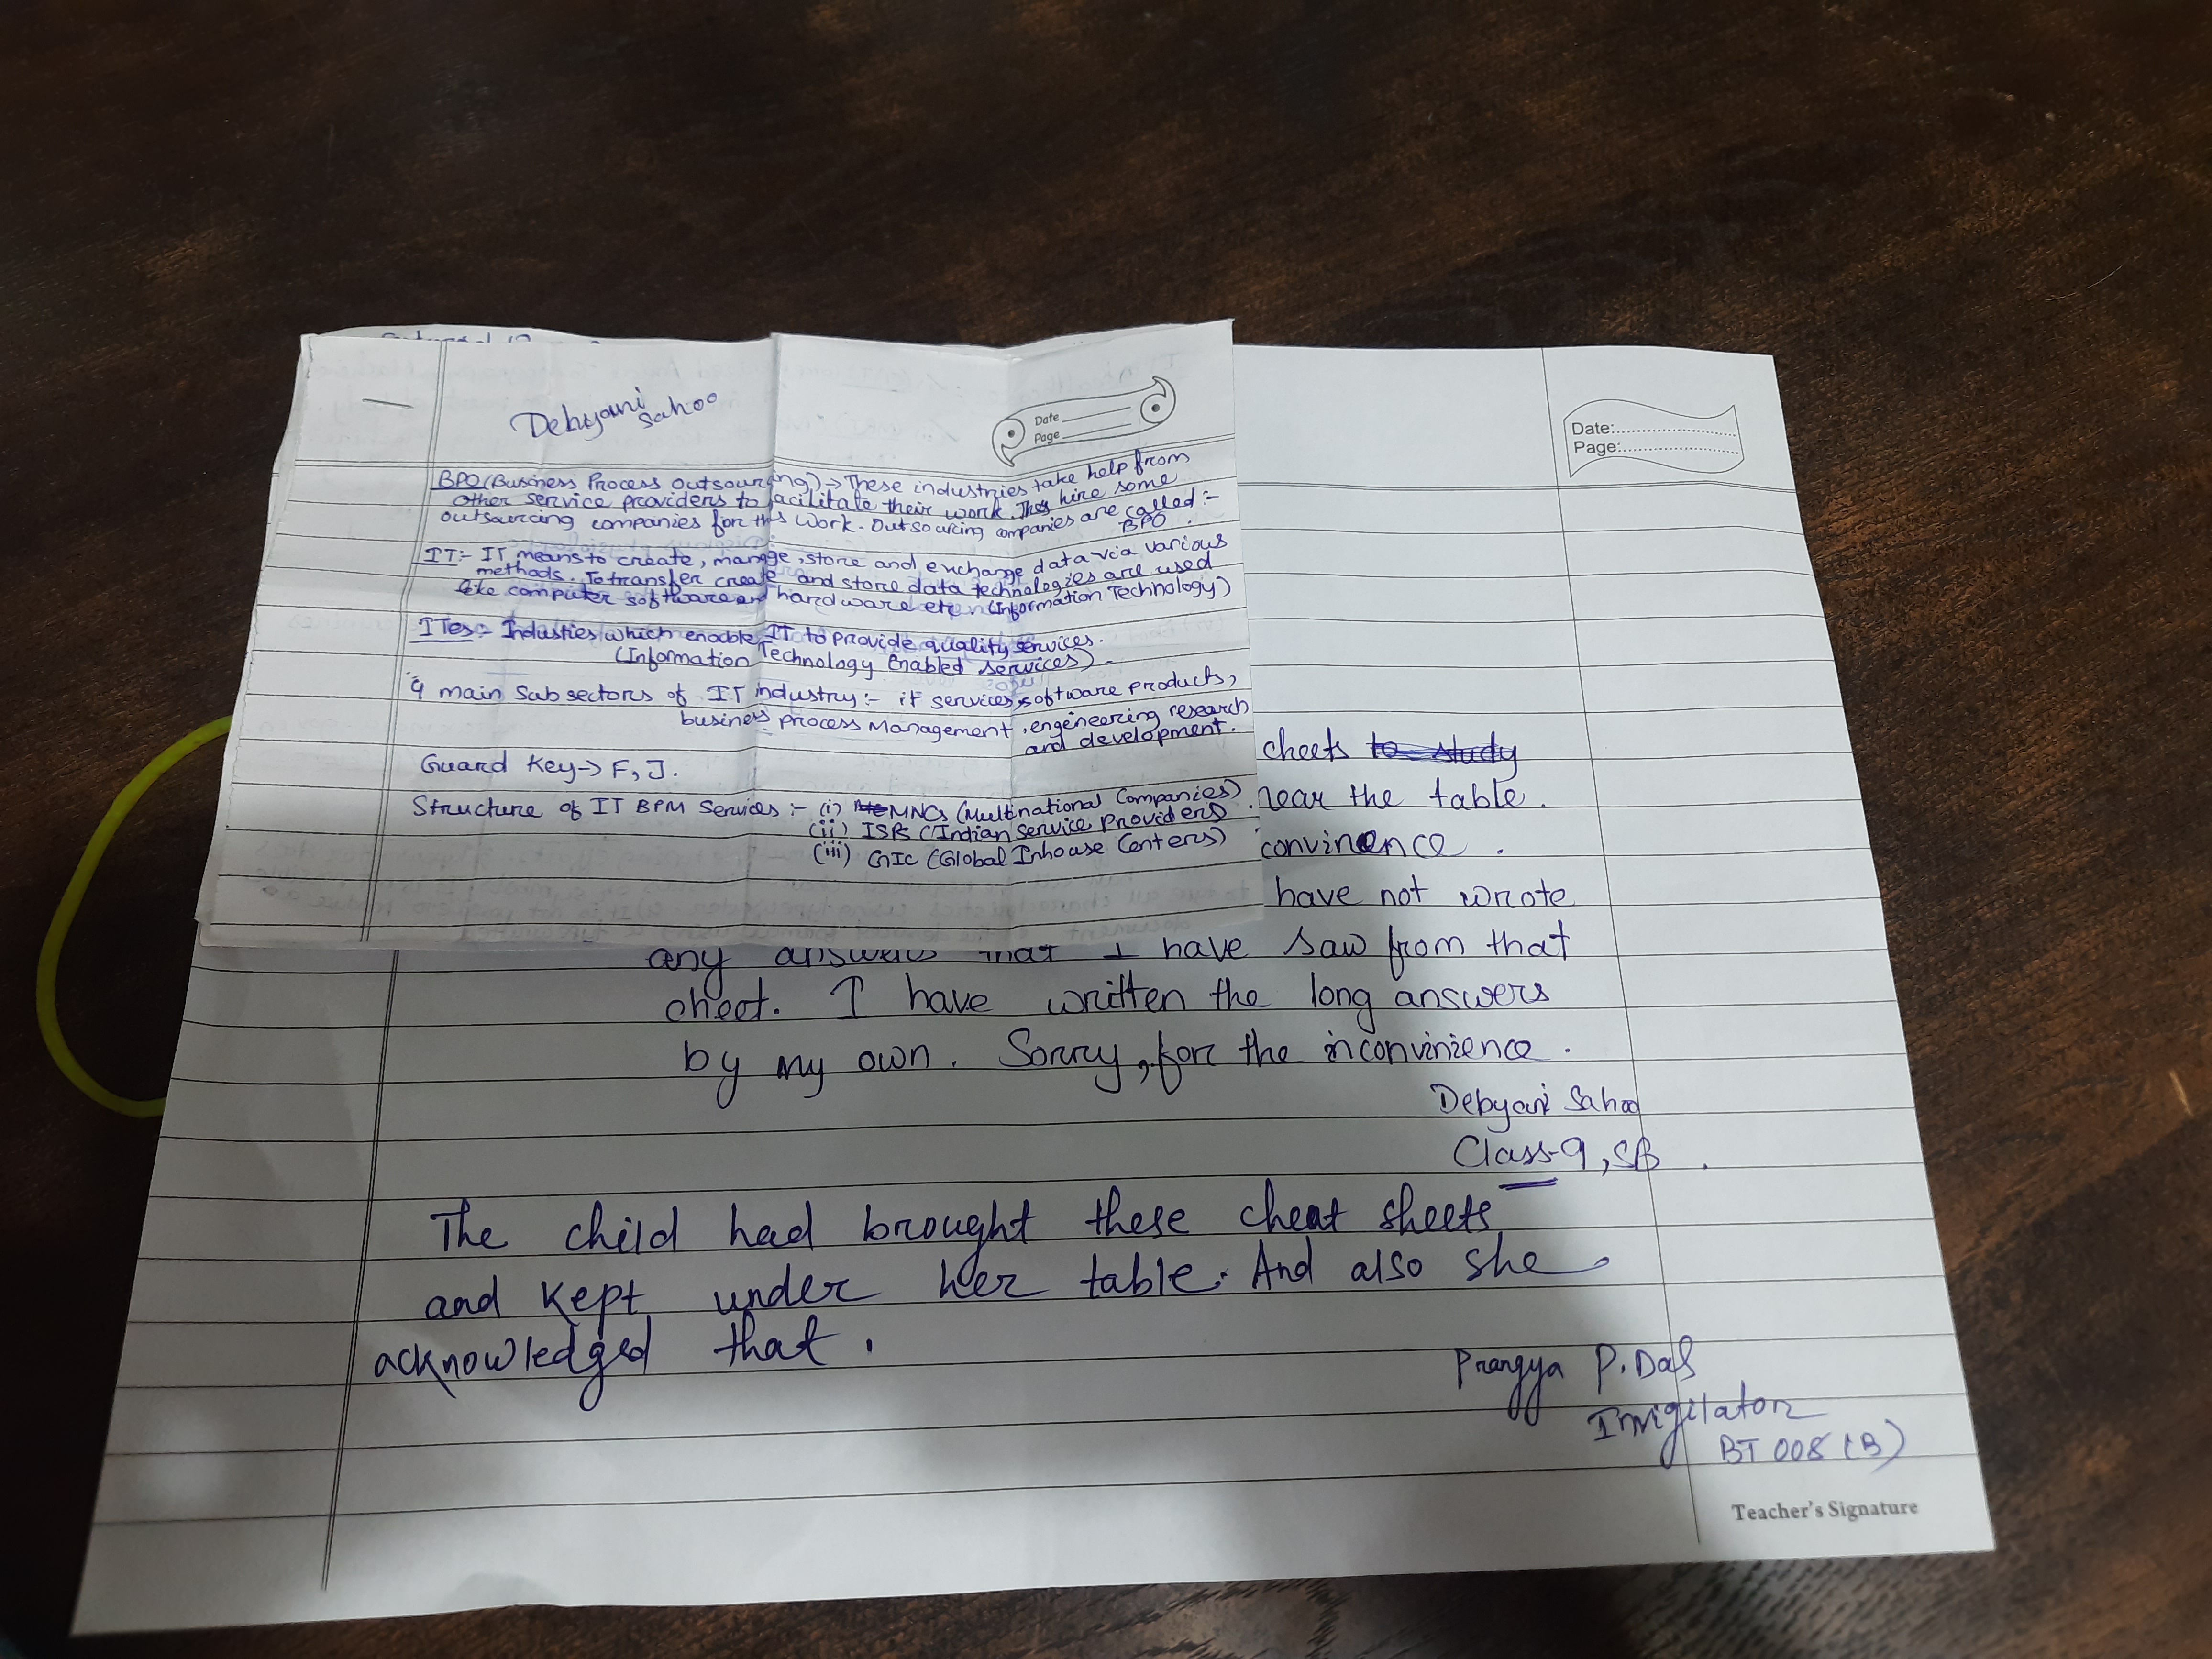 Debyani
Sahoo
Date
Page
BPO (Business Process Outsourcing) → These industries take help from
other service providers to facilitate their work. They hire some
outsourcing companies for this work. Outsourcing companies are called :-
BPO.
IT:- IT means to create, manage, store and exchange data via various
methods. To transfer create and store data technologies are used
like computer software and hardware etc (Information Technology)
ITes:- Industies which enable IT to provide quality services.
(Information Technology Enabled Services)
4 main sub sectors of IT industry :- it services, software products,
business process Management, engeneering research
and development.
Guard Key → F, J.
Structure of IT BPM Services :- (i) MNCs (Multinational Companies)
(ii) ISPs (Indian Service Providers)
(iii) GIC (Global Inhouse Centers)
Date:
Page:
cheets to study
near the table.
convinence.
have not wrote
any answers that I have saw from that
cheet. I have written the long answers
by my own. Sorry, for the inconvinience.
Debyani Sahoo
Class-9, SB
The child had brought these cheat sheets
and kept under her table. And also she
acknowledged that.
Prangya P. Das
Invigilator
BT 008 (B)
Teacher's Signature